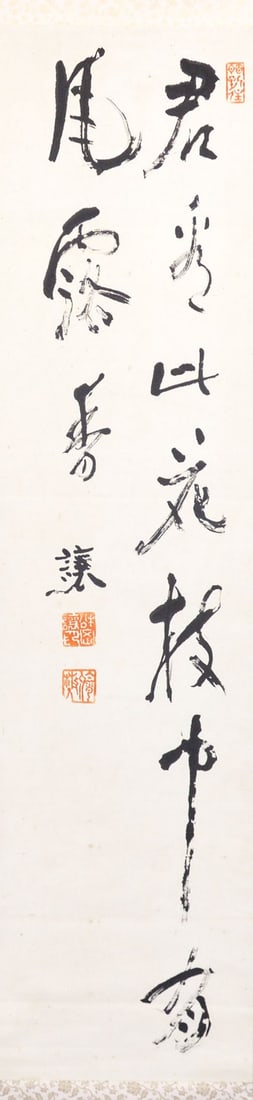 君看此花枝中有
風露香
謙